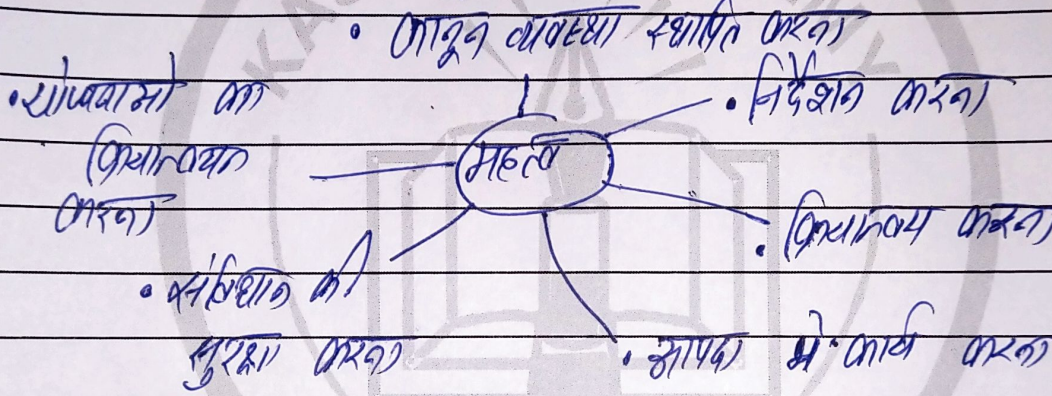 • कानून व्यवस्था स्थापित करना
• योजनाओ का
• निर्देशन करना
क्रियान्वयन
महत्व
करना
• क्रियान्वय करना
• संविधान की
सुरक्षा करना
• आपदा मे कार्य करना